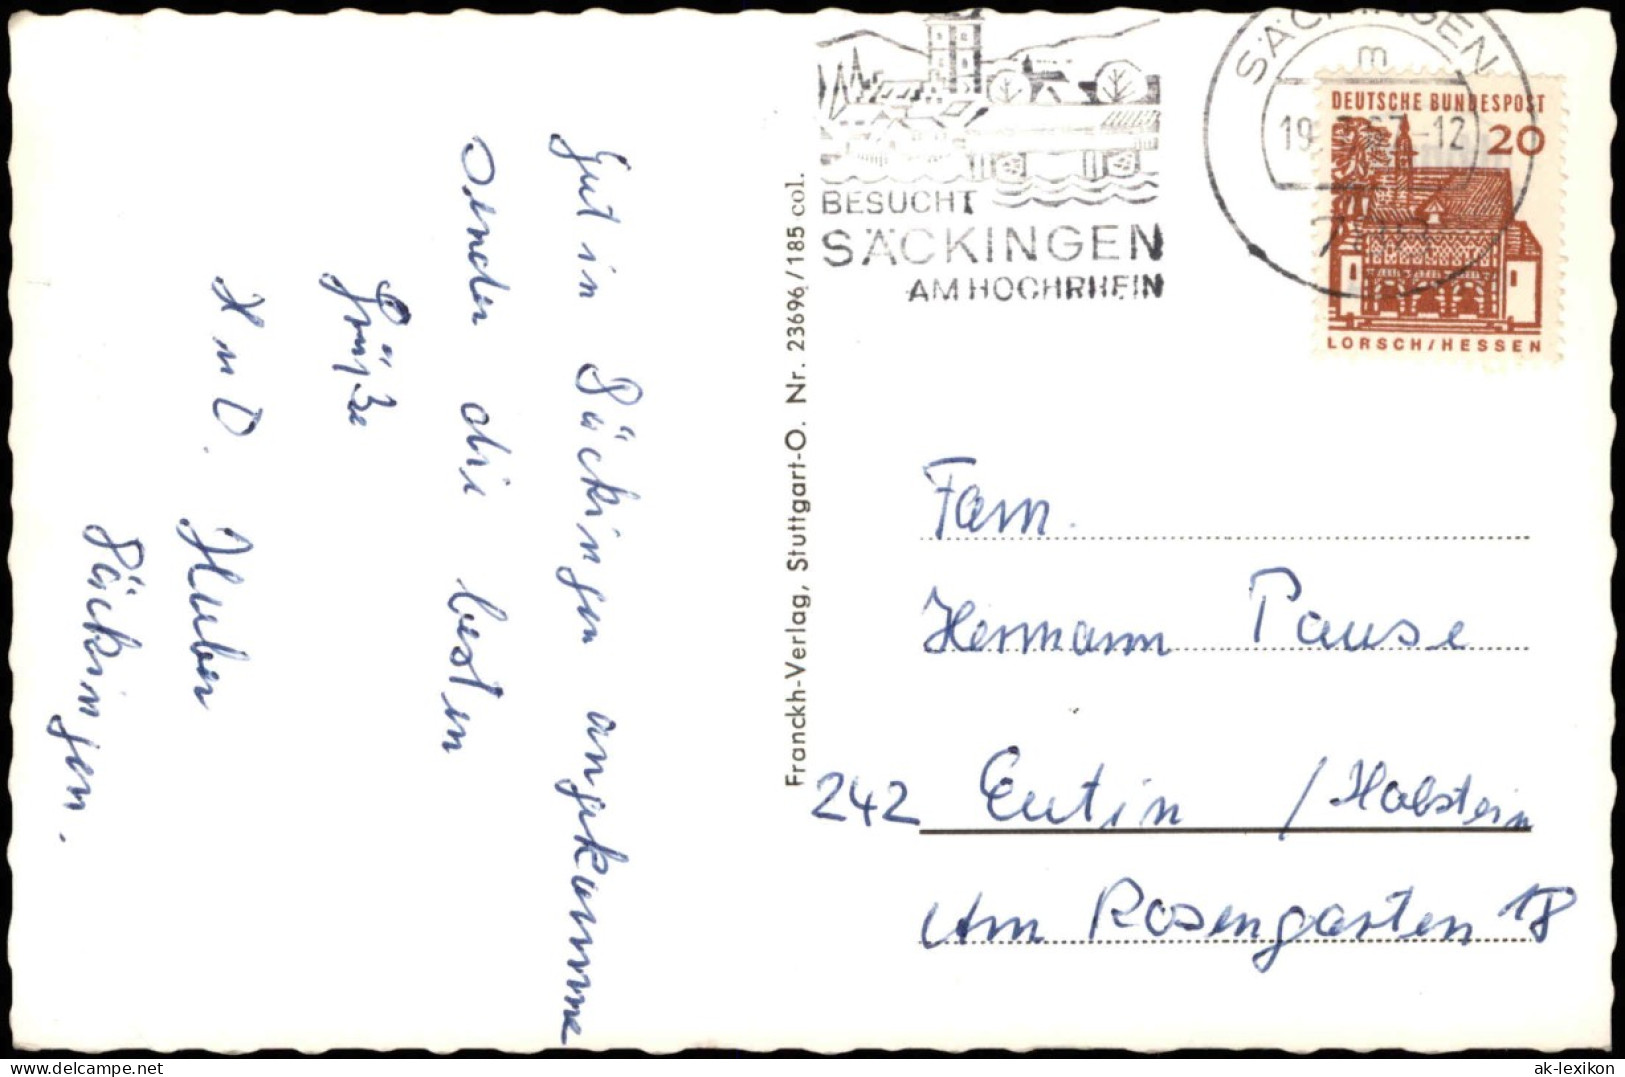 Gut in Säckingen angekommen
senden die besten
Grüße
H u D. Huber
Säckingen.
Franckh-Verlag, Stuttgart-O. Nr. 23696/185 col.
BESUCHT
SÄCKINGEN
AM HOCHRHEIN
SÄCKINGEN
m
19. -12
DEUTSCHE BUNDESPOST
20
LORSCH/HESSEN
Fam.
Hermann Pause
242 Eutin / Holstein
Am Rosengarten 18
www.delcampe.net
ak-lexikon